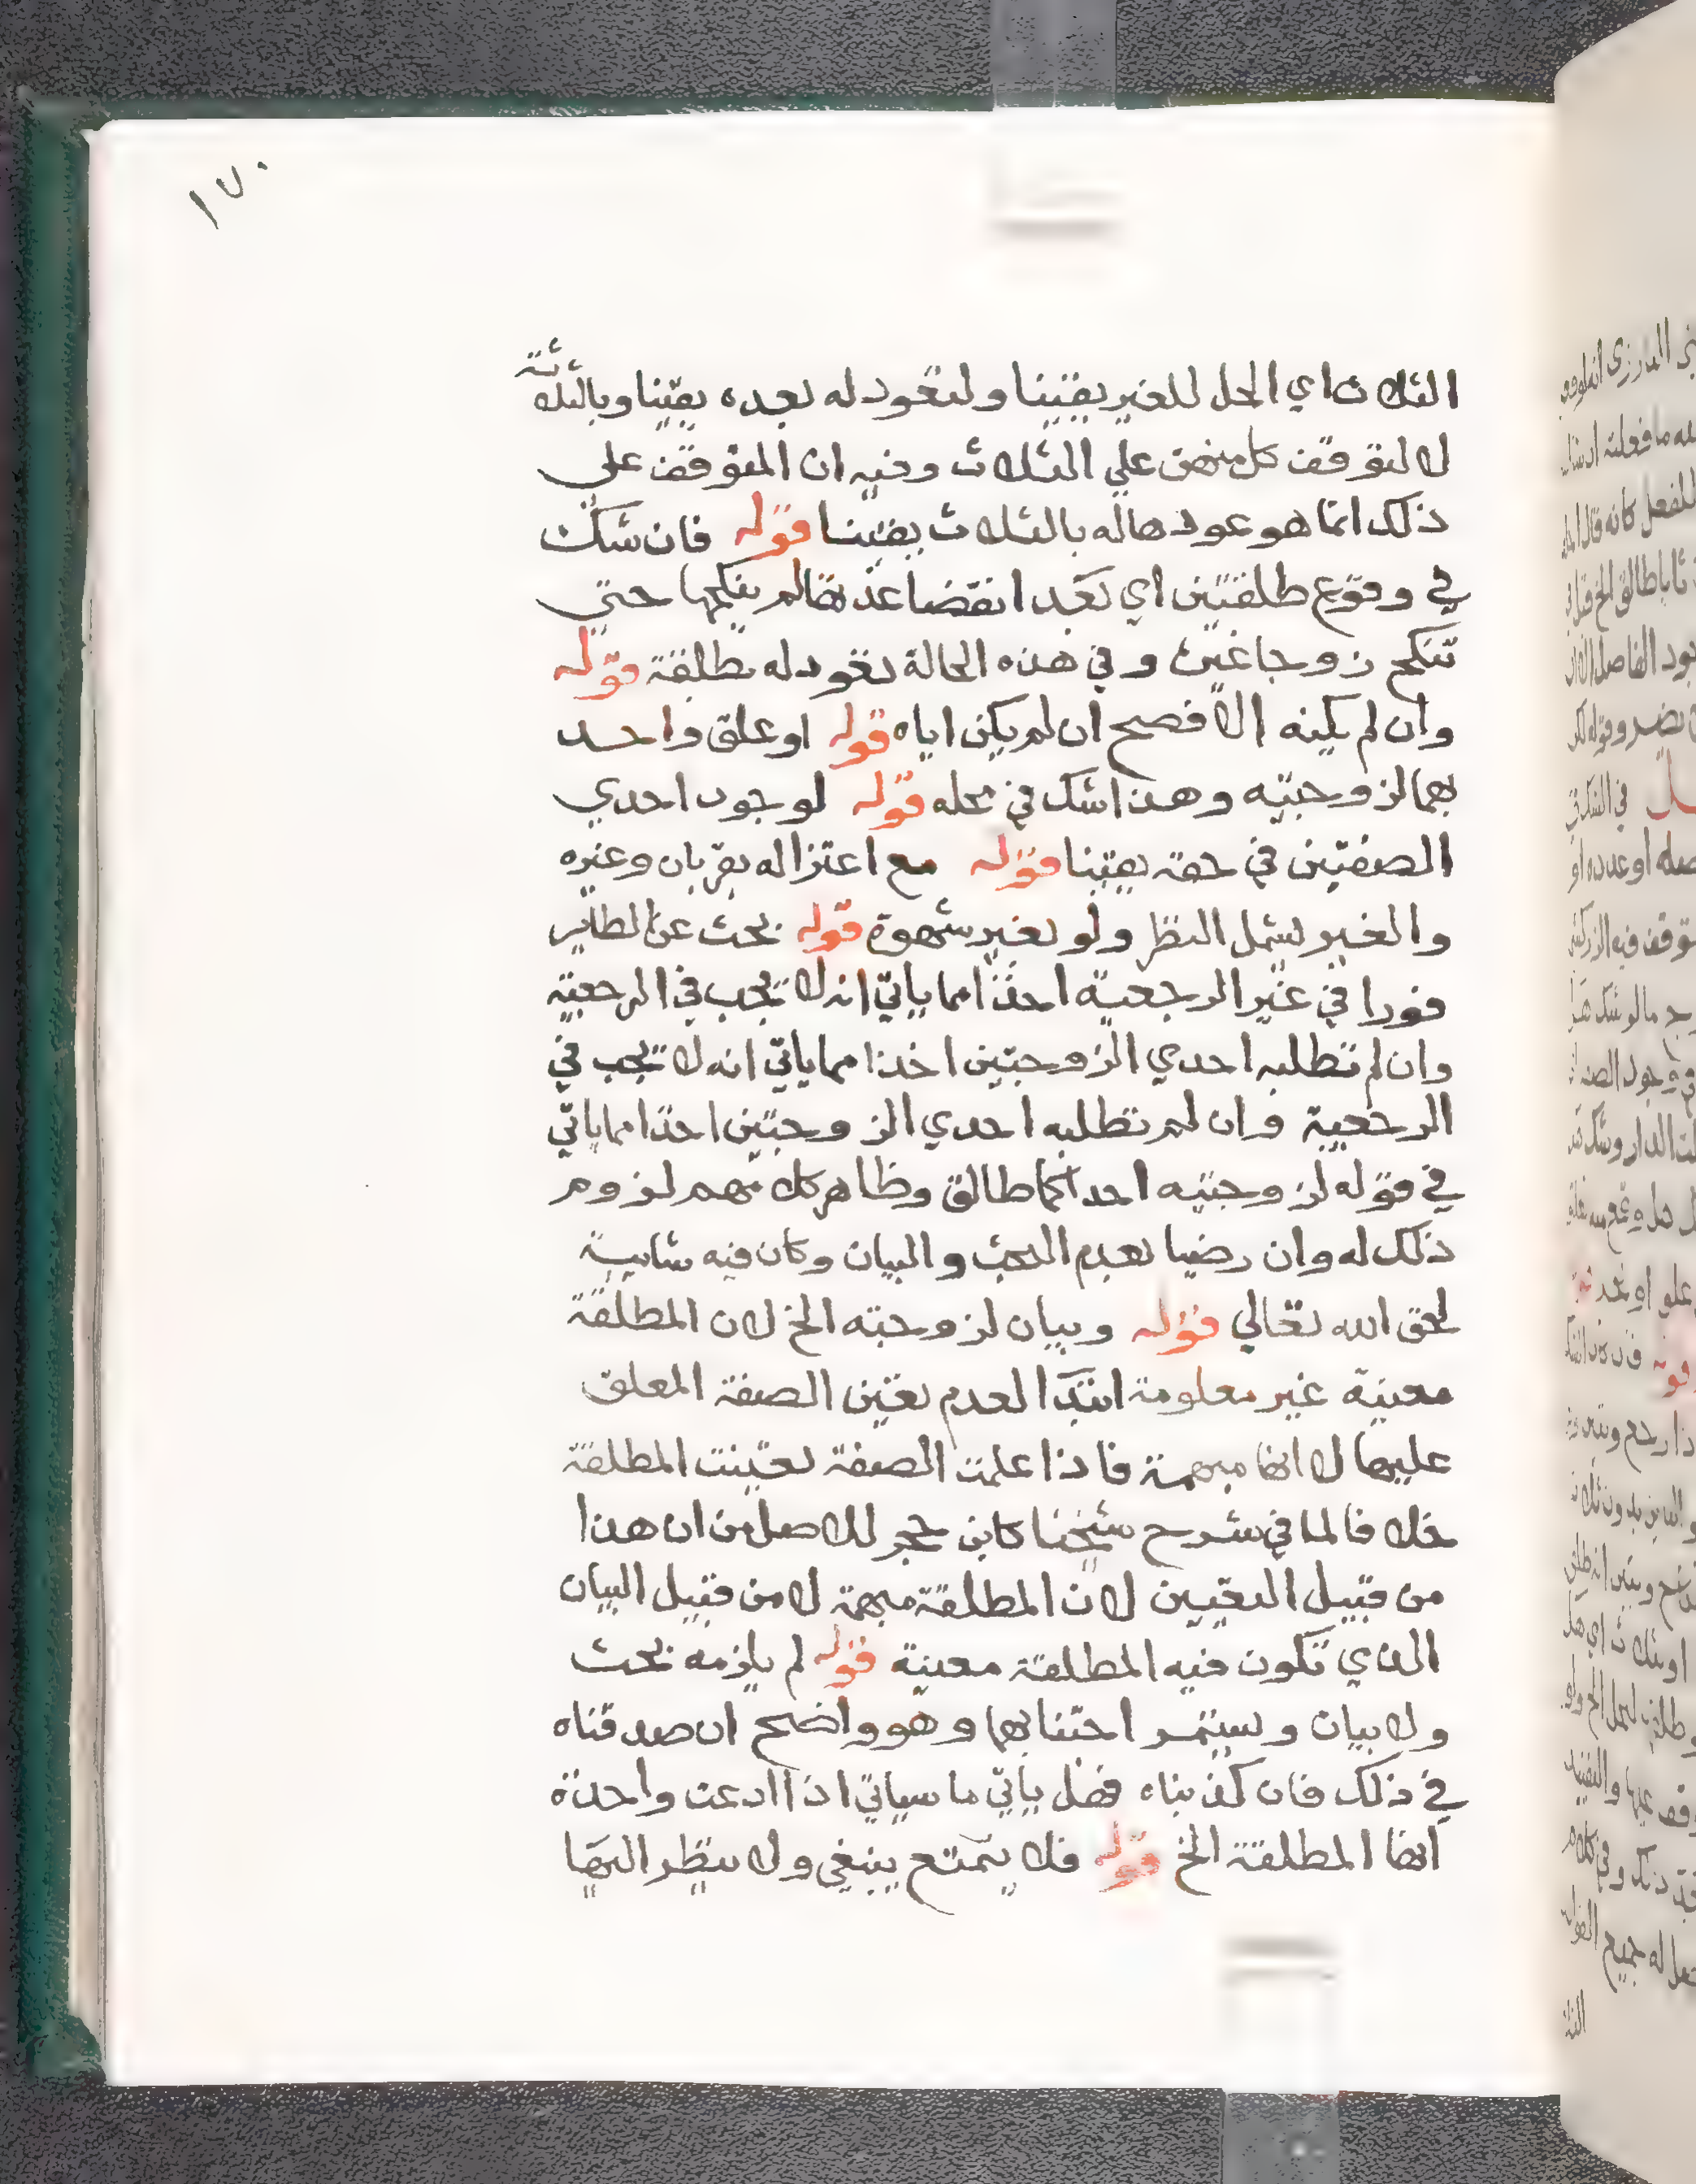 ١٧٠
الثلاث اي الحل للغير يقينا ولتعود له بعده يقينا وبالثلاثة
لا لتوقف كل منهن علي الثلاث وفيه ان المتوقف علي
ذلك انما هو عودها له بالثلاث يقينا قوله فان شك
في وقوع طلقتين اي بعد انقضا عدتها لم ينكحها حتي
تنكح زوجا غيره وفي هذه الحالة تعود له بطلقة قوله
وان لم يكنه الافصح ان لم يكن اياه قوله او علق واحد
بهما لزوجتيه وهذا شك في محله قوله لوجود احدي
الصفتين في حقه يقينا قوله مع اعتزاله بقربان وغيره
والغير يشمل النظر ولو بغير شهوة قوله بحث عن الطاير
فورا في غير الرجعية اخذا مما ياتي انه لا يجب في الرجعية
وان لم تطلبه احدي الزوجتين اخذا مما ياتي انه لا يجب في
الرجعية وان لم تطلبه احدي الزوجتين اخذا مما ياتي
في قوله لزوجتيه احداكما طالق وظاهر كلامهم لزوم
ذلك له وان رضيا بعدم البحث والبيان وكان فيه شايبة
لحق الله تعالي قوله وبيان لزوجته الخ لان المطلقة
معينة غير معلومة ابتدا لعدم تعين الصفة المعلق
عليها لا انها مبهمة فاذا علمت الصفة تعينت المطلقة
خلافا لما في شرح شيخنا كابن حجر للاصل من ان هذا
من قبيل التعيين لان المطلقة مبهمة لا من قبيل البيان
الذي تكون فيه المطلقة معينة قوله لم يلزمه بحث
ولا بيان ويستمر اجتنابهما وهو واضح ان صدقناه
في ذلك فان كذبناه فهل ياتي ما سياتي اذا ادعت واحدة
انها المطلقة الخ قوله فلا يتمتع ينبغي ولا ينظر اليها